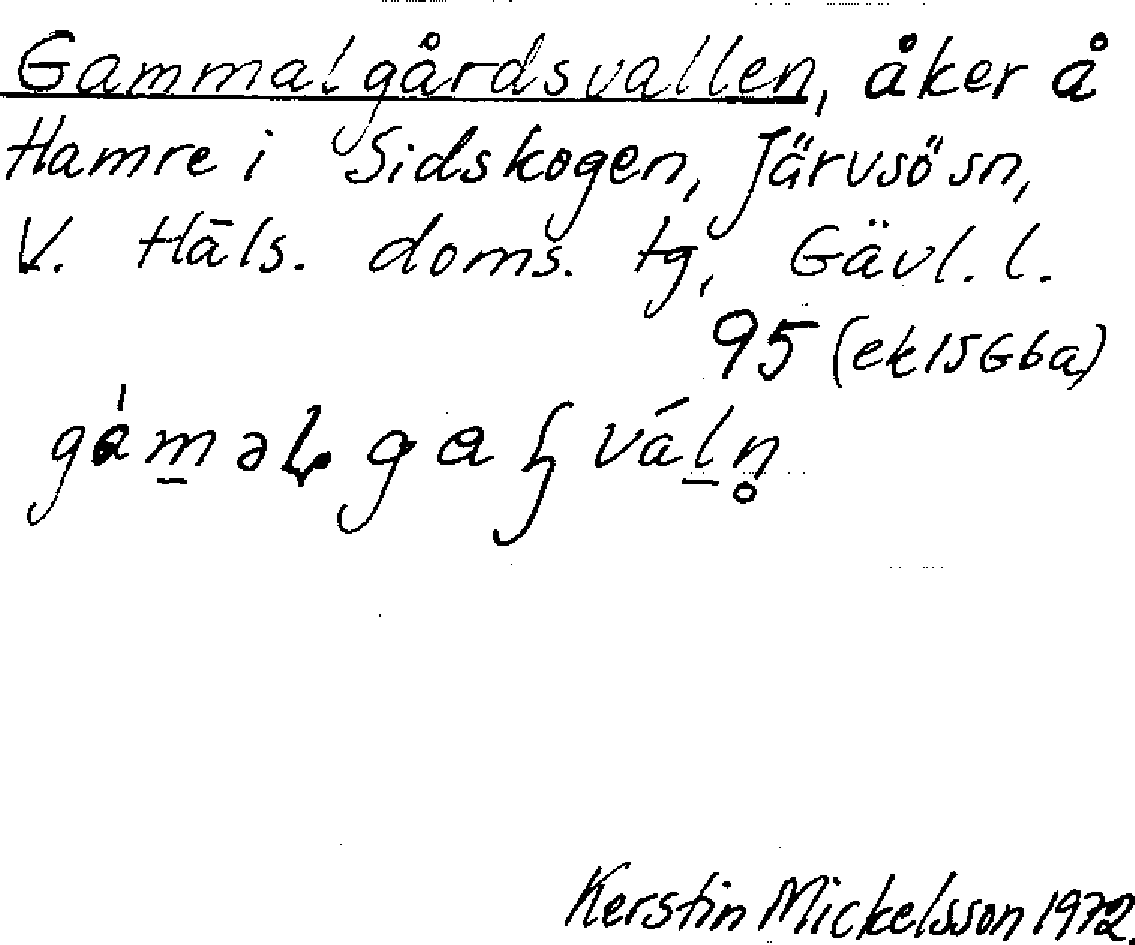 Gammalgårdsvallen, åker å
Hamre i Sidskogen, Järvsö sn,
V. Häls. doms. tg, Gävl. l.
95 (ek 15G6a)
Kerstin Mickelsson 1972.